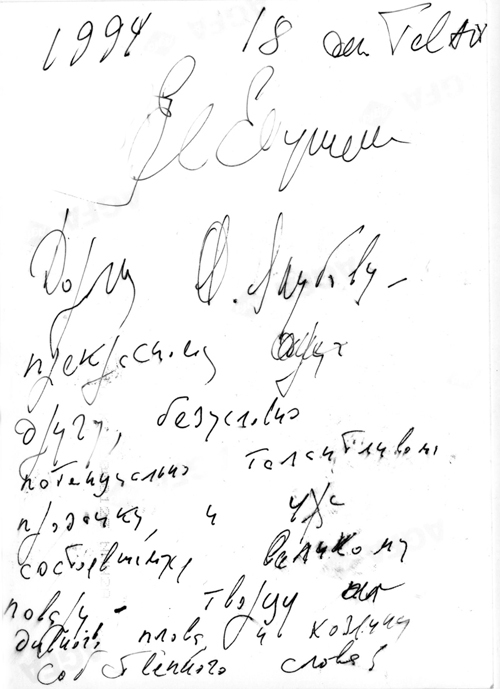 1994 18 окт Tel Aviv
Ф. Якубову -
прекрасному
другу, безусловно
потенциально талантливому
прозаику, и уже
состоявшемуся великому
повару - творцу
дивного плова и хозяину
собственного слова